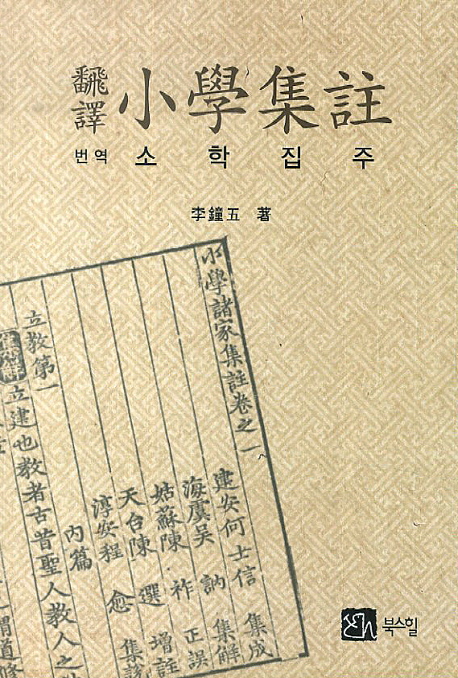 飜譯 小學集註
번역 소학집주
李鐘五 著
小學諸家集註卷之一
建安何士信 集成
海虞吳 訥 集解
姑蘇陳 祚 正誤
天台陳 選 增註
淳安程 愈 集說
內篇
立敎第一
集解 立建也敎者古昔聖人敎人之
謂道修
북스힐